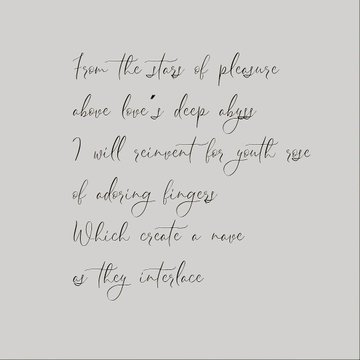 From the stars of pleasure
above love's deep abyss
I will reinvent for youth rose
of adoring fingers
Which create a nave
as they interlace